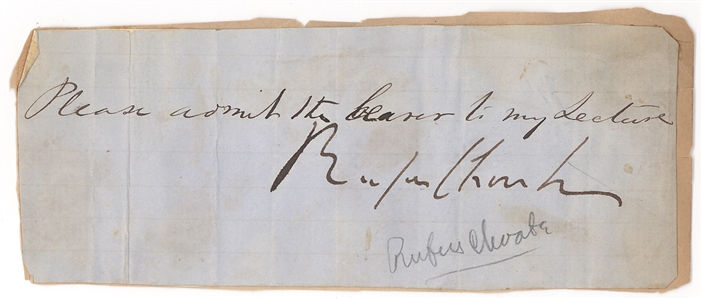 Please admit the bearer to my Lecture
Rufus Choate
Rufus Choate